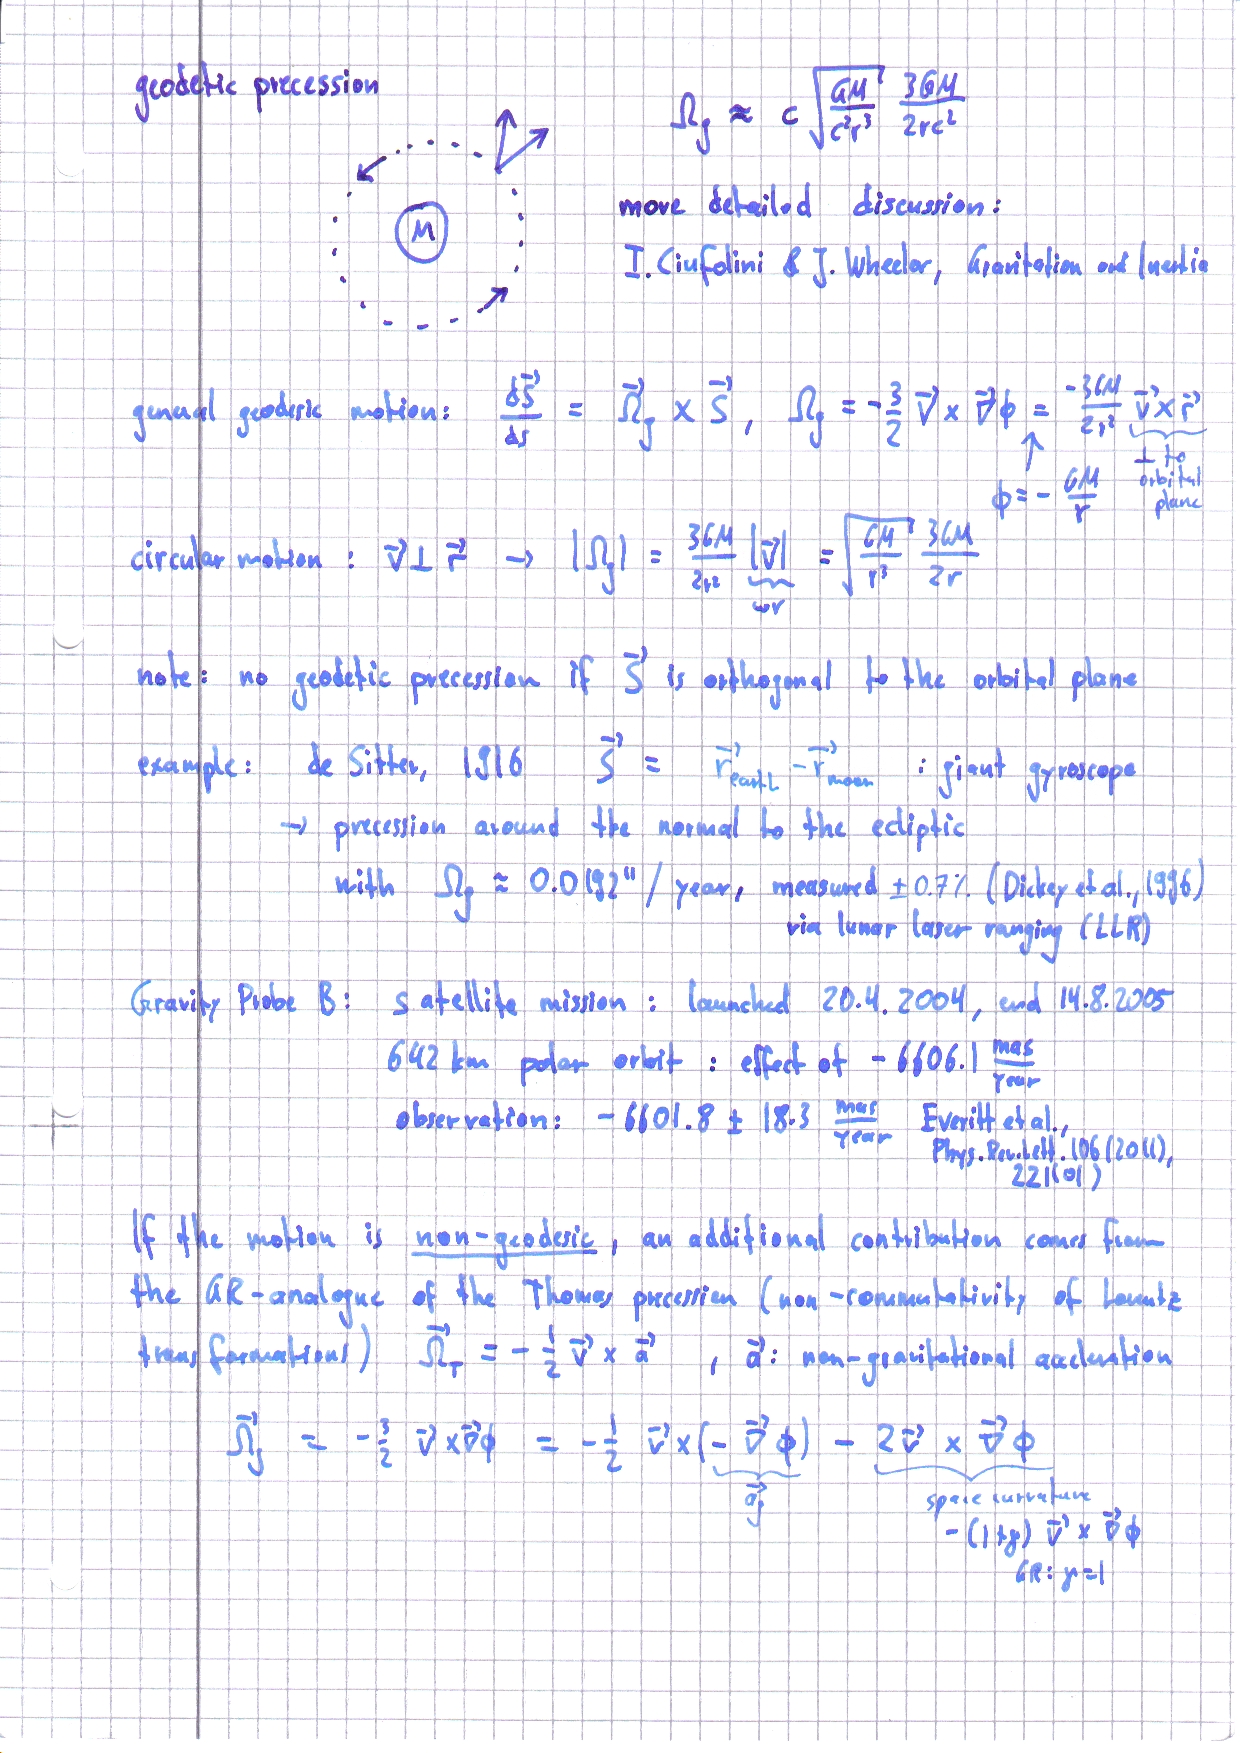 geodetic precession
Ω_g ≈ c √(GM/c²r³) 3GM/2rc²
M
more detailed discussion:
I. Ciufolini & J. Wheeler, Gravitation and Inertia
general geodesic motion: dS⃗/ds = Ω⃗_g × S⃗, Ω_g = -3/2 v⃗ × ∇⃗ϕ = -3GM/2r² v⃗ × r⃗
⊥ to orbital plane
ϕ = - GM/r
circular motion: v⃗ ⊥ r⃗ → |Ω_g| = 3GM/2r² |v⃗| = √(GM/r³) 3GM/2r
ωr
note: no geodetic precession if S⃗ is orthogonal to the orbital plane
example: de Sitter, 1916 S⃗ = r⃗_earth - r⃗_moon : giant gyroscope
→ precession around the normal to the ecliptic
with Ω_g ≈ 0.0192"/year, measured ±0.7% (Dickey et al., 1996)
via lunar laser ranging (LLR)
Gravity Probe B: satellite mission: launched 20.4.2004, end 14.8.2005
642 km polar orbit: effect of -6606.1 mas/year
observation: -6601.8 ± 18.3 mas/year Everitt et al.,
Phys. Rev. Lett. 106 (2011),
221101)
If the motion is non-geodesic, an additional contribution comes from
the GR-analogue of the Thomas precession (non-commutativity of Lorentz
transformations) Ω⃗_T = -1/2 v⃗ × a⃗ , a⃗: non-gravitational acceleration
Ω⃗_g = -3/2 v⃗ × ∇⃗ϕ = -1/2 v⃗ × (-∇⃗ϕ) - 2v⃗ × ∇⃗ϕ
a⃗_g
space curvature
-(1+γ) v⃗ × ∇⃗ϕ
GR: γ=1